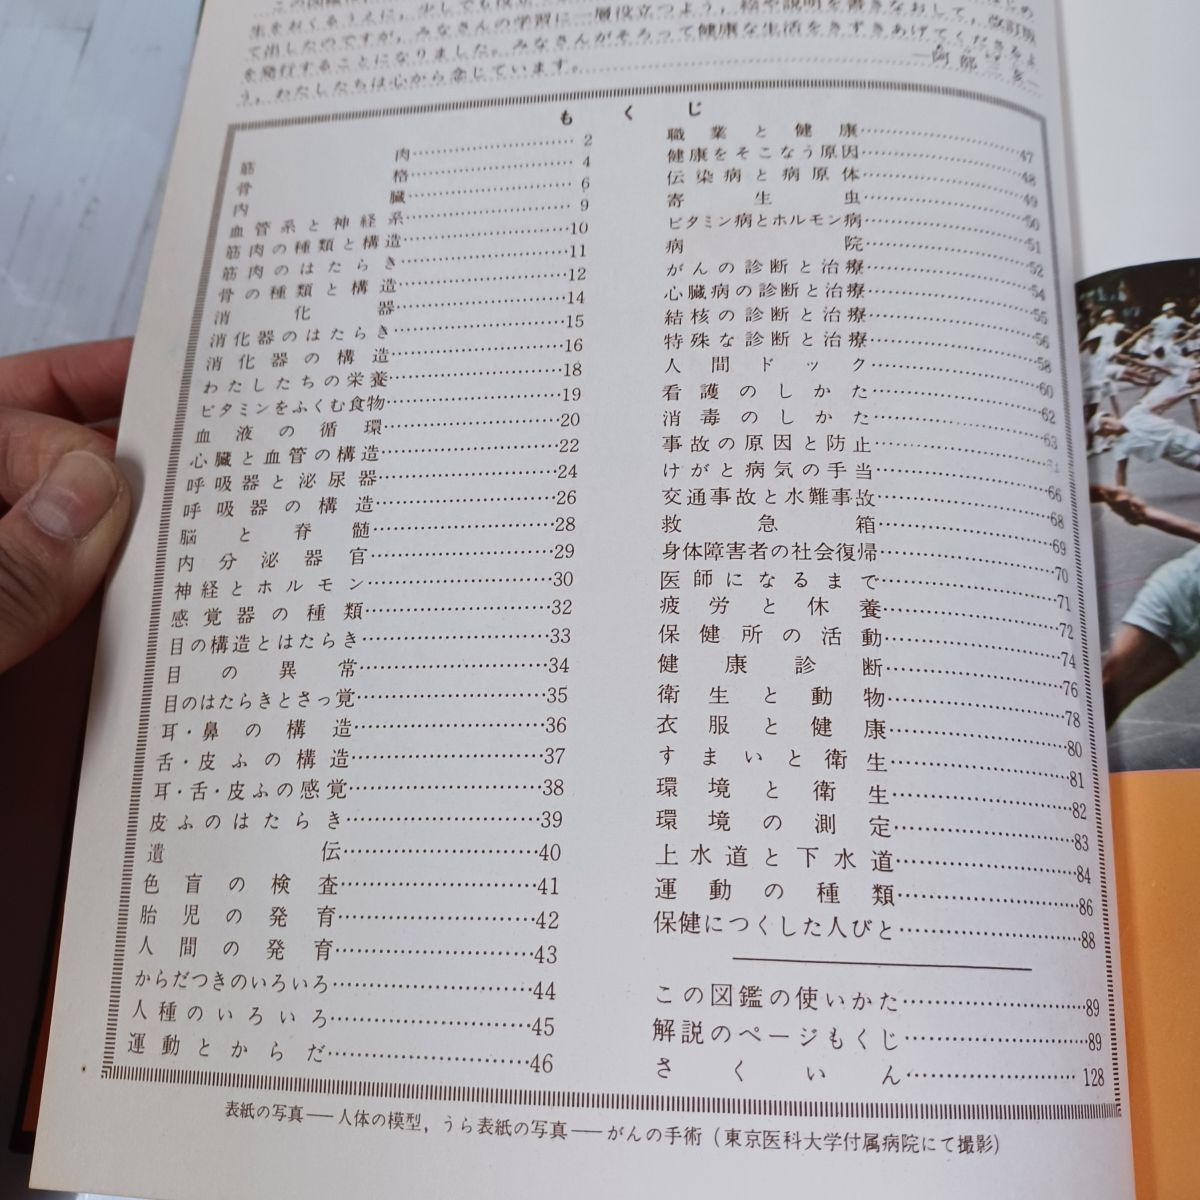 生をおくるうえに，少しでも役立
て出したのですが，みなさんの学習に一層役立つよう，絵や説明を書きなおして，改訂版
を発行することになりました。みなさんがそろって健康な生活をきずきあげてくださるよ
う，わたしたちは心から念じています。
もくじ
筋肉……2
骨格……4
内臓……6
血管系と神経系……9
筋肉の種類と構造……10
筋肉のはたらき……11
骨の種類と構造……12
消化器……14
消化器のはたらき……15
消化器の構造……16
わたしたちの栄養……18
ビタミンをふくむ食物……19
血液の循環……20
心臓と血管の構造……22
呼吸器と泌尿器……24
呼吸器の構造……26
脳と脊髄……28
内分泌器官……29
神経とホルモン……30
感覚器の種類……32
目の構造とはたらき……33
目の異常……34
目のはたらきとさっ覚……35
耳・鼻の構造……36
舌・皮ふの構造……37
耳・舌・皮ふの感覚……38
皮ふのはたらき……39
遺伝……40
色盲の検査……41
胎児の発育……42
人間の発育……43
からだつきのいろいろ……44
人種のいろいろ……45
運動とからだ……46
職業と健康……47
健康をそこなう原因……48
伝染病と病原体……49
寄生虫……50
ビタミン病とホルモン病……51
病院……52
がんの診断と治療……54
心臓病の診断と治療……55
結核の診断と治療……56
特殊な診断と治療……58
人間ドック……60
看護のしかた……62
消毒のしかた……63
事故の原因と防止……64
けがと病気の手当……66
交通事故と水難事故……68
救急箱……69
身体障害者の社会復帰……70
医師になるまで……71
疲労と休養……72
保健所の活動……74
健康診断……76
衛生と動物……78
衣服と健康……80
すまいと衛生……81
環境と衛生……82
環境の測定……83
上水道と下水道……84
運動の種類……86
保健につくした人びと……88
この図鑑の使いかた……89
解説のページもくじ……89
さくいん……128
表紙の写真――人体の模型，うら表紙の写真――がんの手術（東京医科大学付属病院にて撮影）